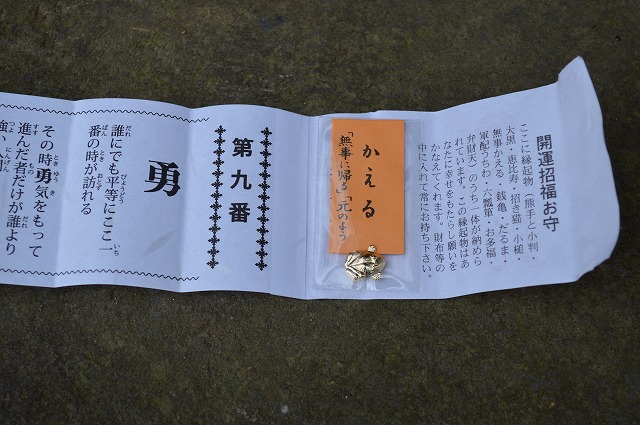 開運招福お守
ここに縁起物（熊手と小判・
大黒・恵比寿・招き猫・小槌・
無事かえる・銭亀・だるま・
軍配うちわ・六瓢箪・お多福・
弁財天）のうち一体が納めら
れています。この縁起物はあ
なたに幸せをもたらし願いを
かなえてくれます。財布等の
中に入れて常にお持ち下さい。
かえる
「無事に帰る」「元のよう
第九番
勇
誰にでも平等にここ一
番の時が訪れる
その時勇気をもって
進んだ者だけが誰より
強い